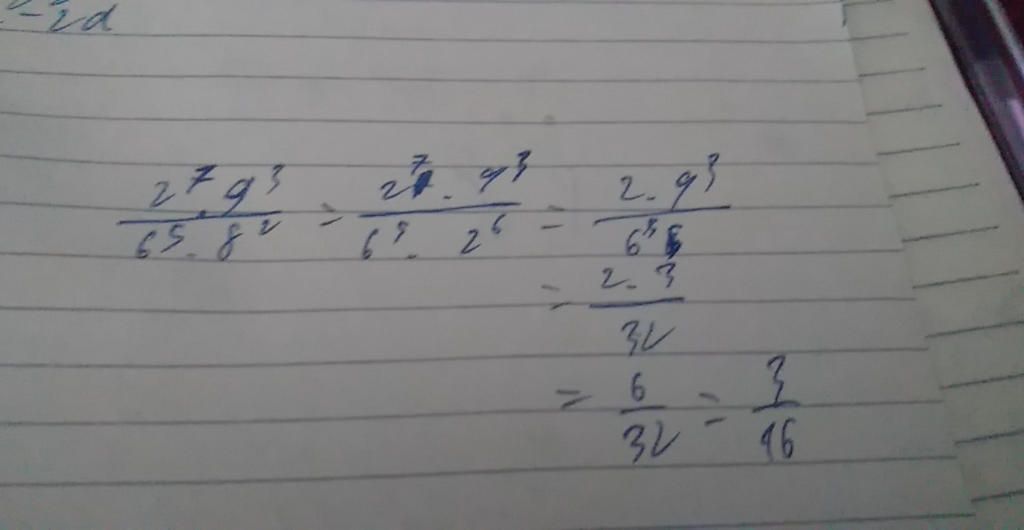 -2d
2⁷.9³/6⁵.8² = 2⁷.9³/6⁵.2⁶ = 2.9³/6⁵
= 2.3/32
= 6/32 = 3/16